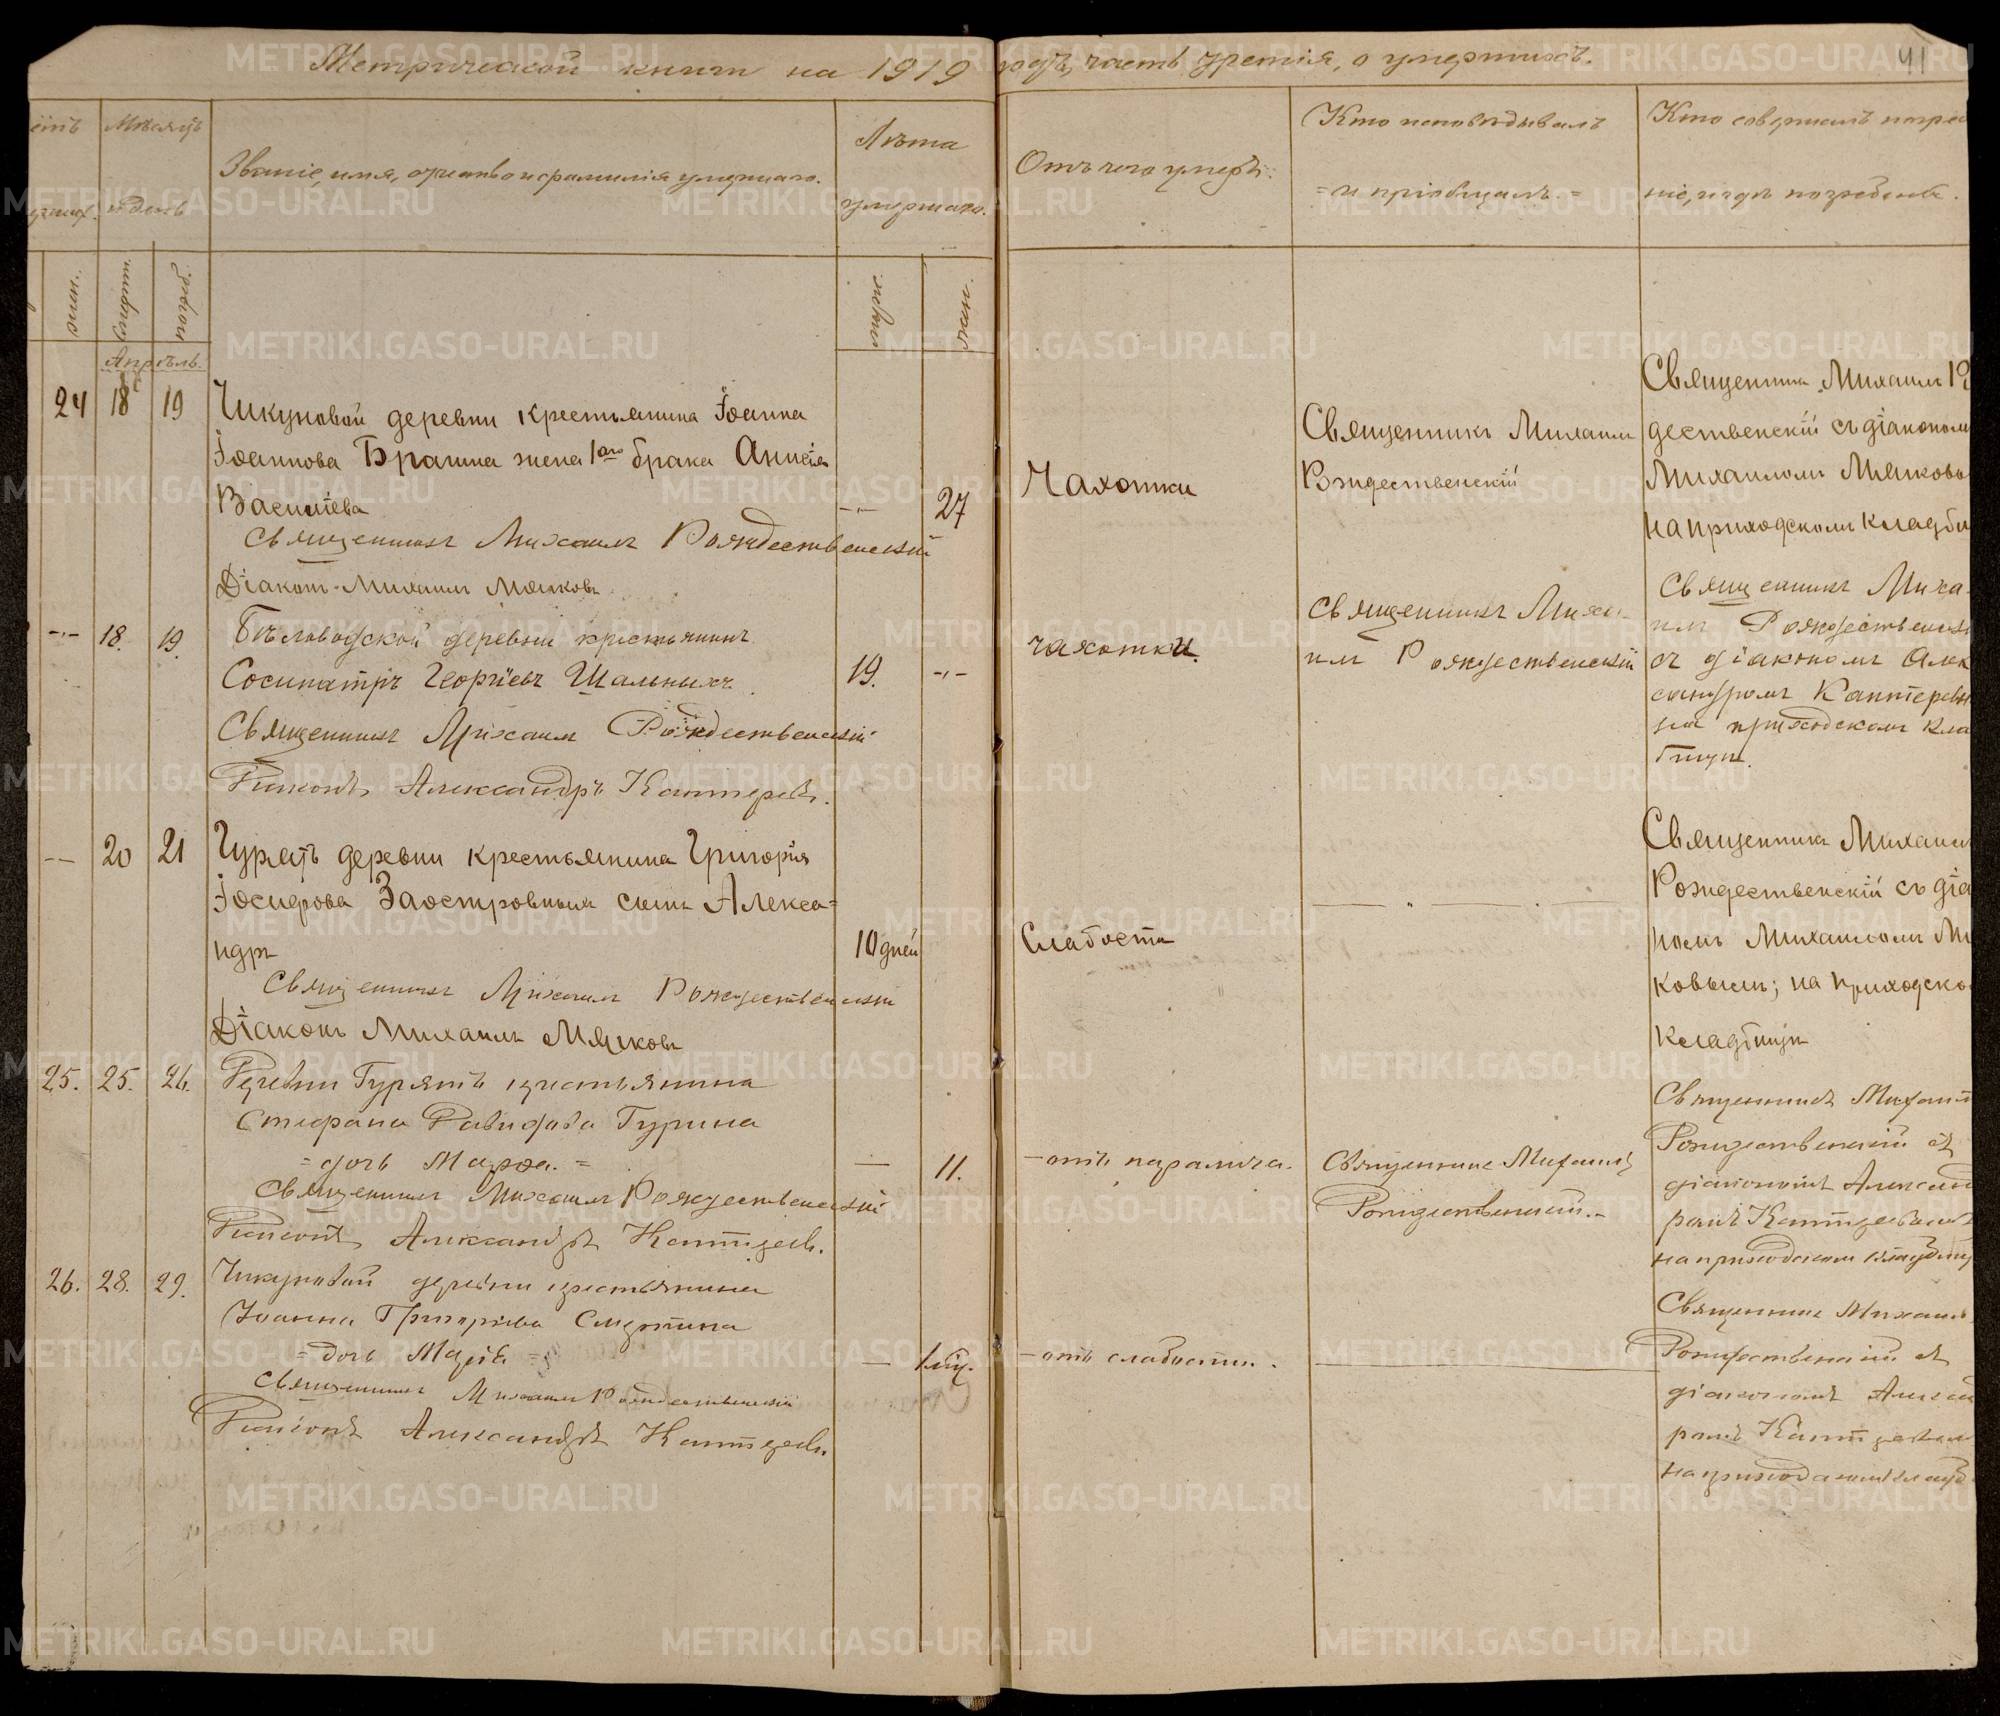 Метрической книги на 1919
годъ, часть третія, о умершихъ.
41
Мѣсяцъ
и день
Званіе, имя, отчество и фамилія умершаго.
Лѣта
умершаго.
Отъ чего умеръ.
Кто исповѣдывалъ
= и пріобщалъ. =
Кто совершалъ погребе
ніе, и гдѣ погребенъ.
жен.
смерт.
погреб.
муж.
жен.
Апрѣль.
24 18 19 Чикуновой деревни крестьянина Іоанна
Іоаннова Брагина жена 1го брака Анисія
Василіева -"- 27
Священникъ Михаилъ Рождественскій
Діаконъ Михаилъ Мяжковъ
Чахотки
Священникъ Михаилъ
Рождественскій
Священникъ Михаилъ Ро
дественскій съ діакономъ
Михаиломъ
на приходскомъ кладби
-"- 18. 19. Бѣловодской деревни крестьянинъ
Сосипатръ Георгіевъ Шальныхъ. 19. -"-
Священникъ Михаилъ Рождественскій
Діаконъ Александръ Каптеревъ.
чахотки.
Священникъ Миха-
илъ Рождественскій
Священникъ Миха-
илъ Рождественск
съ діакономъ Алек
сандромъ Каптеревы
на приходскомъ кла
бищѣ.
-- 20 21 Гурятъ деревни крестьянина Григорія
Іосифова Заостровныхъ сынъ Алекса=
ндръ 10 дней
Священникъ Михаилъ Рождественскій
Діаконъ Михаилъ Мяжковъ
Слабости
Священникъ Михаил
Рождественскій съ діа
номъ Михаиломъ Мя
ковымъ; на приходско
кладбищѣ
25. 25. 26. Деревни Гурятъ крестьянина
Стефана Давидова Гурина
= дочь Марѳа. = — 11.
Священникъ Михаилъ Рождественскій
Діаконъ Александръ Каптеревъ.
— отъ паралича.
Священникъ Михаилъ
Рождественскій. –
Священникъ Михаил
Рождественскій съ
діакономъ Александ
ромъ Каптеревымъ
на приходскомъ кладбищѣ
26. 28. 29. Чикуновой деревни крестьянина
Іоанна Григорьева Смертина
= дочь Марія = — 1 мѣц.
Священникъ Михаилъ Рождественскій
Діаконъ Александръ Каптеревъ.
— отъ слабости. .
Священникъ Михаилъ
Рождественскій съ
діакономъ Алексан
ромъ Каптеревым
на приходскомъ кладб
METRIKI.GASO-URAL.RU